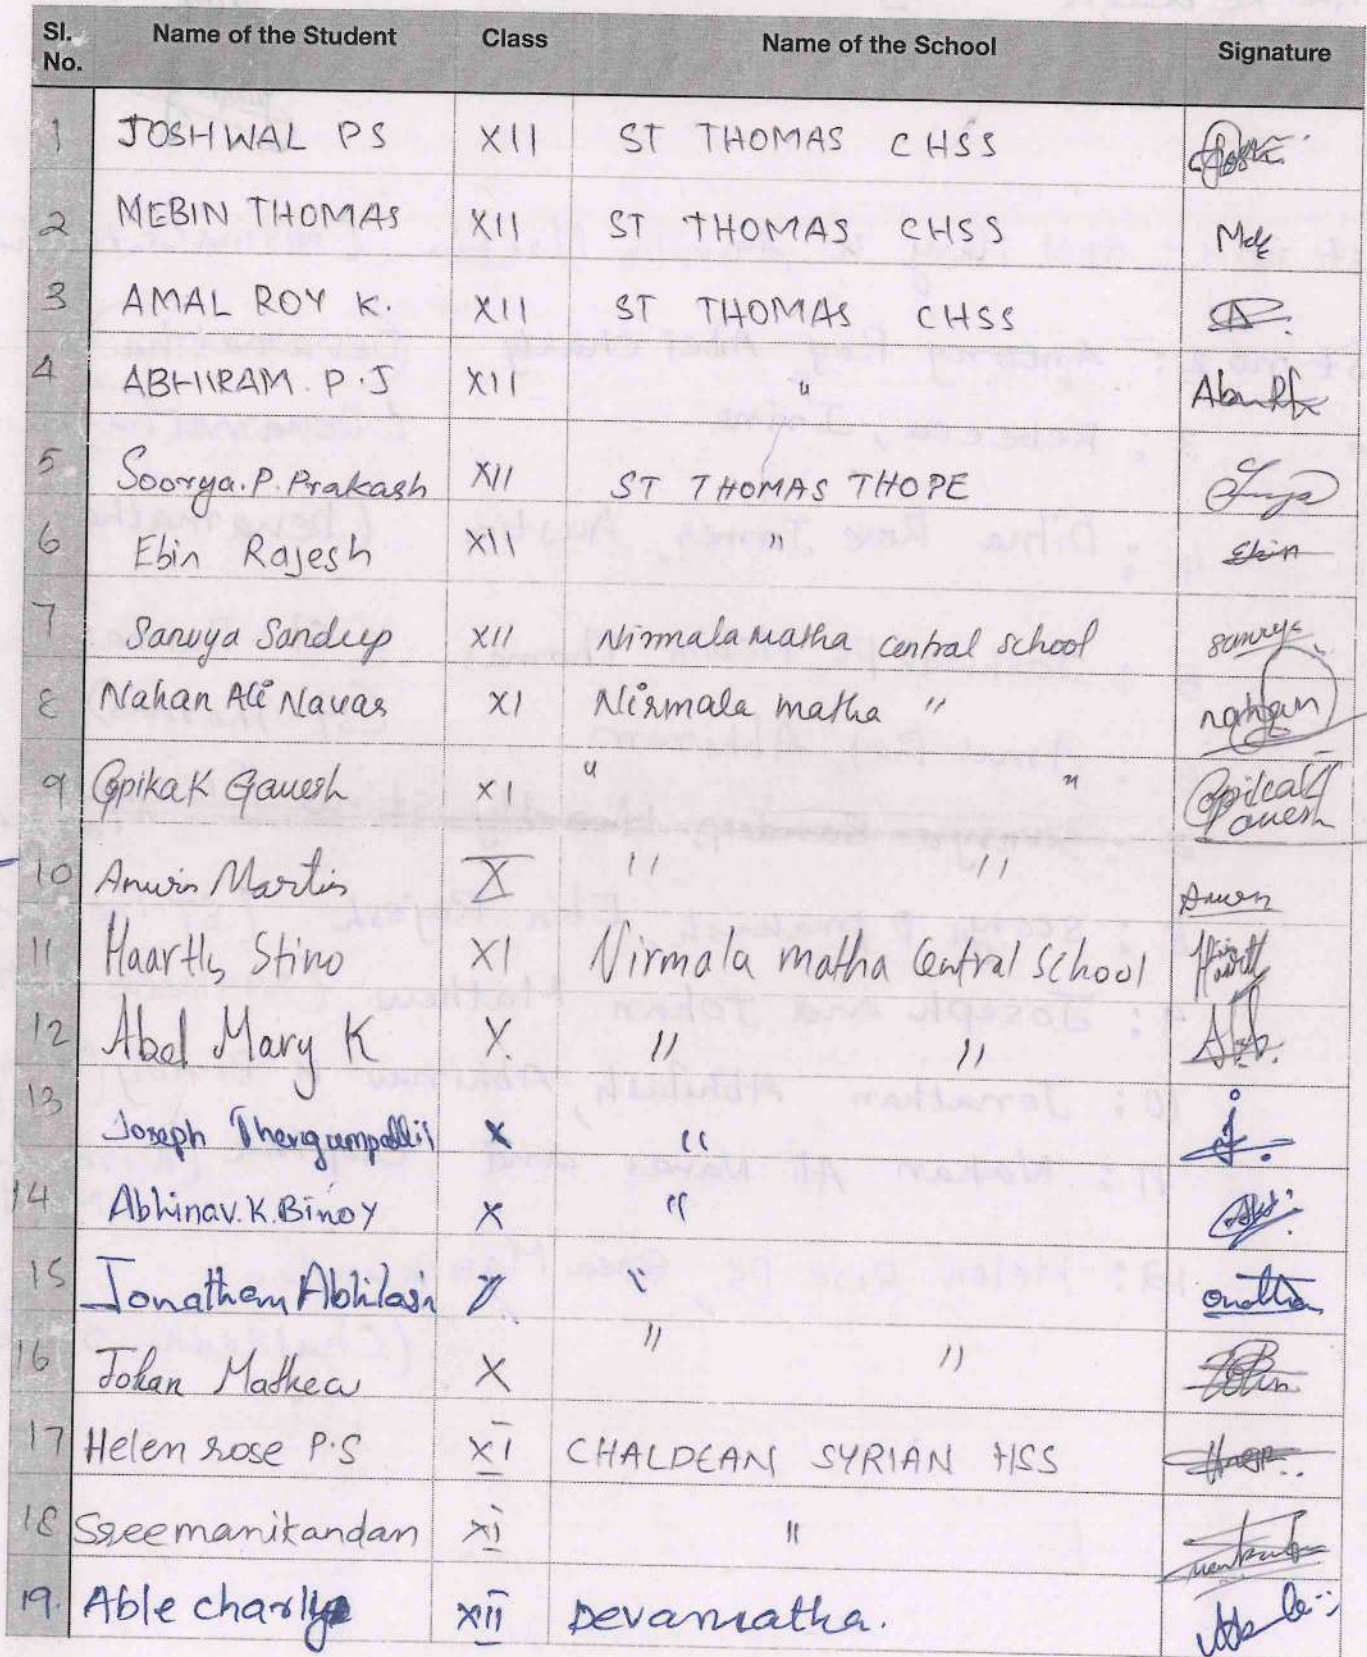 Sl. No. Name of the Student Class Name of the School Signature
1 JOSHWAL PS XII ST THOMAS CHSS
2 MEBIN THOMAS XII ST THOMAS CHSS
3 AMAL ROY K. XII ST THOMAS CHSS
4 ABHIRAM. P.J XII "
5 Soorya.P.Prakash XII ST THOMAS THOPE
6 Ebin Rajesh XII " Ebin
7 Sanvya Sandeep XII Nirmala matha central school
8 Nahan Ali Navas XI Nirmala matha " nahan
9 Gopika K Ganesh XI " " Gopika K Ganesh
10 Anwin Martin X " "
11 Haartly Stino XI Nirmala matha Central School
12 Abel Mary K X. " "
13 Joseph Thengumpallil X "
14 Abhinav.K.Binoy X "
15 Jonathan Abhilash X "
16 Johan Mathew X " "
17 Helen rose P.S XI CHALDEAN SYRIAN HSS
18 Sreemanikandan XI "
19. Able charly XII Devamatha.